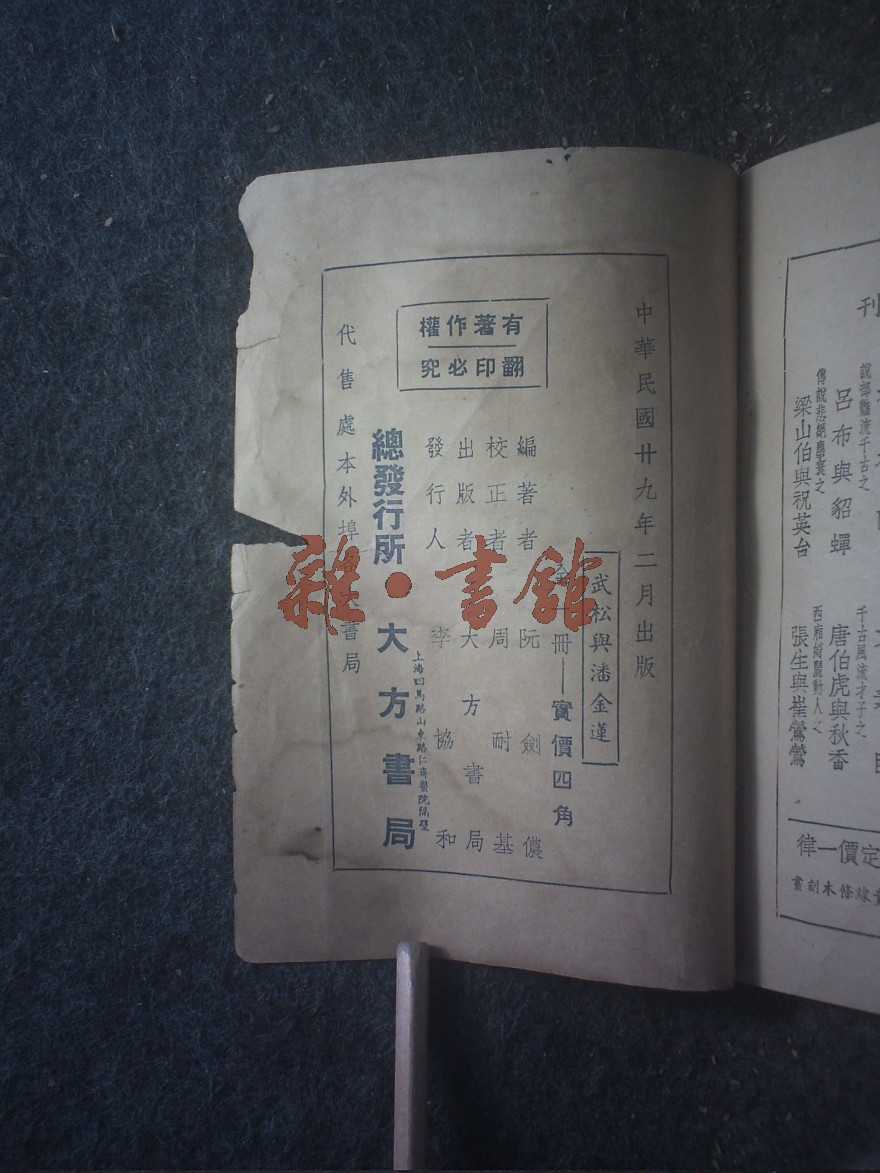 中華民國廿九年二月出版
武松與潘金蓮
一冊——實價四角
編著者 阮劍儂
校正者 周耐基
出版者 大方書局
發行人 李協和
有著作權
翻印必究
總發行所 大方書局
上海四馬路山東路仁濟醫院隔壁
代售處本外埠 書局
刊
說部豔流千古之
呂布與貂蟬
傳說悲絕塵寰之
梁山伯與祝英台
千古風流才子之
唐伯虎與秋香
西廂 豔動人之
張生與崔鶯鶯
定價一律
線條木刻畫
雜·書館